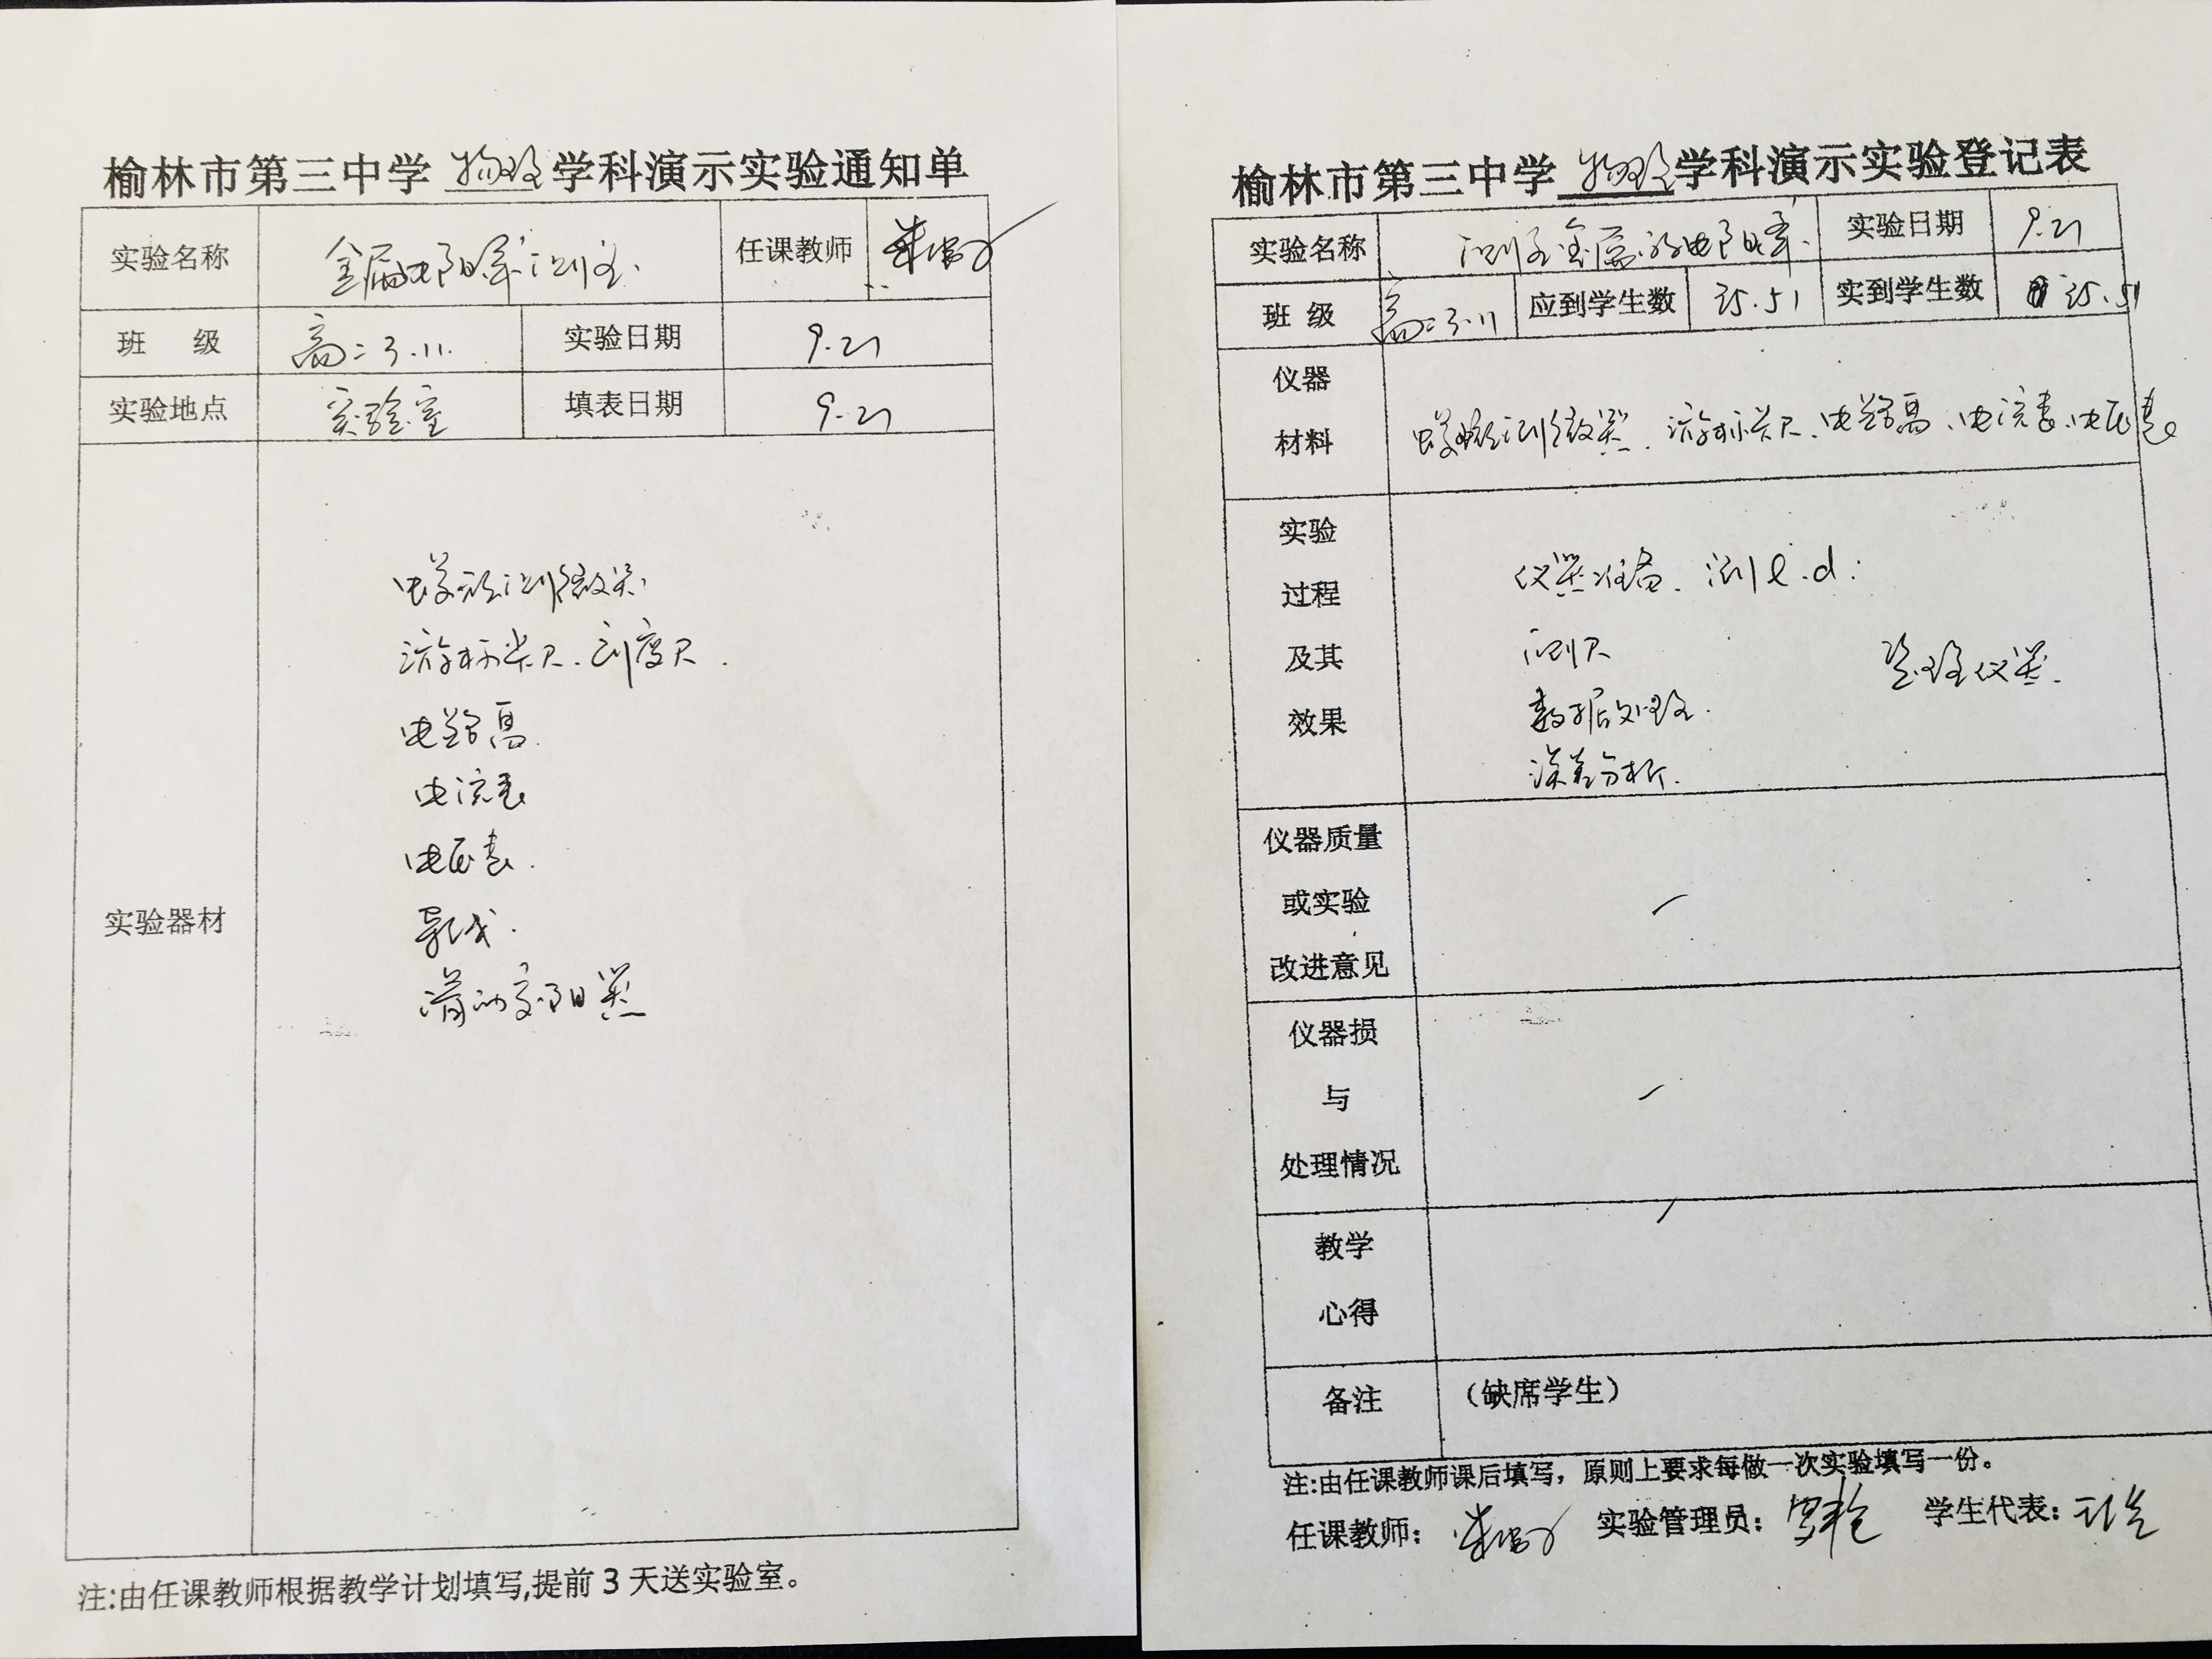 榆林市第三中学 物理 学科演示实验通知单
实验名称 金属电阻率测定. 任课教师
班 级 高二 3.11. 实验日期 9.21
实验地点 实验室 填表日期 9.21
实验器材
螺旋测微器.
游标卡尺.刻度尺.
电学黑
电流表
电压表.
导线.
滑动变阻器
注:由任课教师根据教学计划填写,提前3天送实验室。
榆林市第三中学 物理 学科演示实验登记表
实验名称 测定金属的电阻率. 实验日期 9.21
班 级 高二 3.11 应到学生数 55.51 实到学生数 55.51
仪器
材料
螺旋测微器.游标卡尺.电流表.电压表
实验
过程
及其
效果
仪器准备.测l.d.
测R
数据处理.
误差分析.
整理仪器.
仪器质量
或实验
改进意见
仪器损
与
处理情况
教学
心得
备注 (缺席学生)
注:由任课教师课后填写,原则上要求每做一次实验填写一份。
任课教师: 实验管理员: 学生代表: